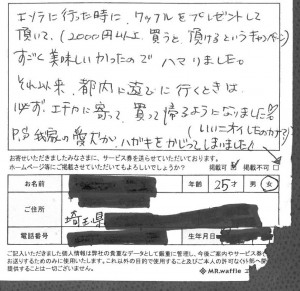 エソラに行った時に、ワッフルをプレゼントして
頂いて、(2000円以上買うと頂けるというキャンペーン)
すごく美味しかったのでハマりました。
それ以来、都内に遊びに行くときは、
必ずエチカに寄って、買って帰るようになりました
(いいニオイしたのカナ?)
P.S 我家の愛犬が、ハガキをかじってしまいました!
お寄せいただきましたみなさまに、サービス券を送らせていただいております。
ホームページ等にご掲載させていただいてもよろしいでしょうか? 掲載可 掲載不可
お名前 年齢 25才 男 女
ご住所 埼玉県
電話番号 生年月日
ご記入いただきました個人情報は弊社の貴重なデータとして厳重に管理し、今後ご案内やサービス券
お送りするためのみに使いたします。これ以外の目的で使用すること及びご本人の許可なく外部へ
提供することは一切ございません。
MR.waffle エ